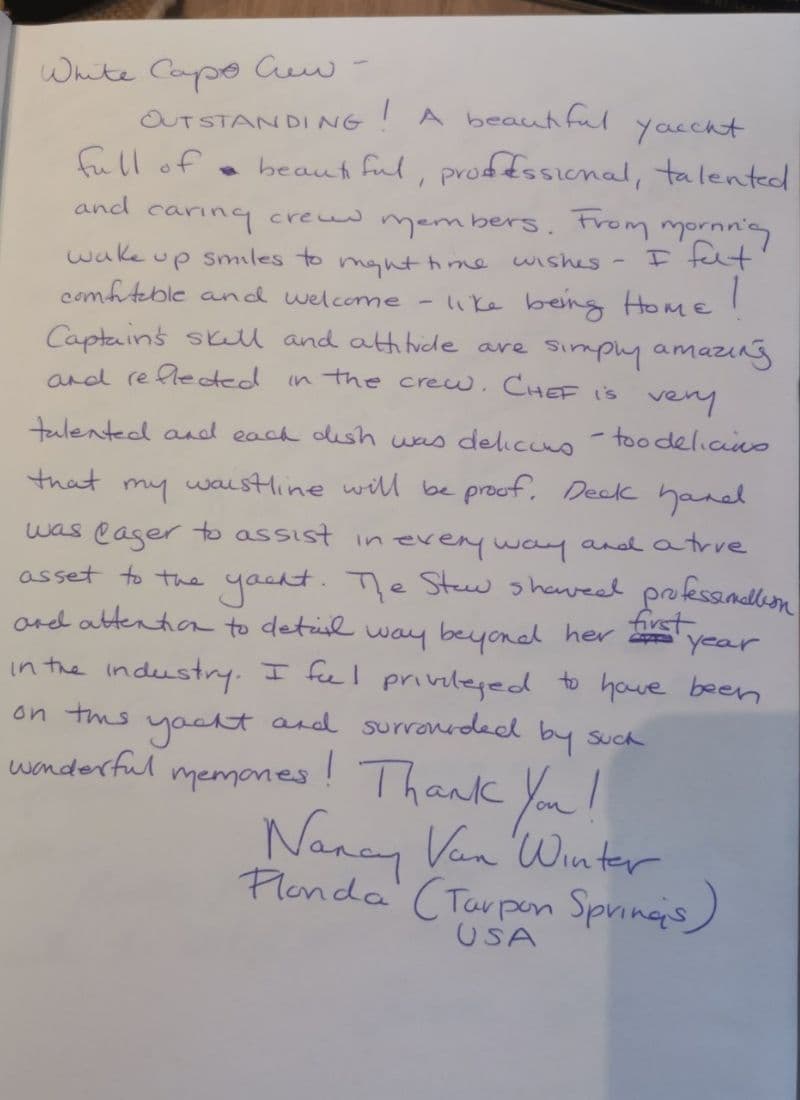 White Capo Crew -
OUTSTANDING! A beautiful yaccht
full of beautiful, professional, talented
and caring crew members. From morning
wake up smiles to night time wishes - I felt
comfitable and welcome - like being HOME!
Captain's skill and attitude are simply amazing
and reflected in the crew. CHEF is very
talented and each dish was delicius - too delicius
that my waistline will be proof. Deck hand
was eager to assist in every way and a true
asset to the yacht. The Stew showed professionalism
and attention to detail way beyond her first year
in the industry. I feel privileged to have been
on this yacht and surrounded by such
wonderful memories! Thank You!
Nancy Van Winter
Florida (Tarpon Springs)
USA